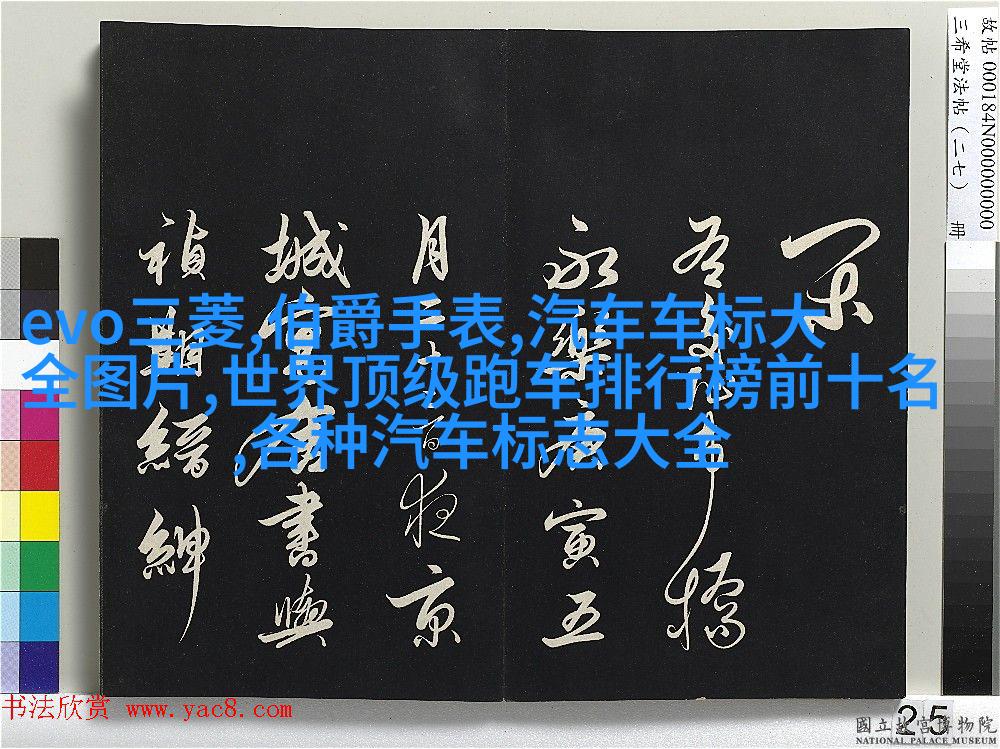 故帖 000184N000000000
三希堂法帖(二七) 冊
永樂庚寅五
月二十 夜京
城 書與
禎 縉紳
evo三菱,伯爵手表,汽车车标大
全图片,世界顶级跑车排行榜前十名
,各种汽车标志大全
书法欣赏 www.yac8.com
25
國立故宮博物院
NATIONAL PALACE MUSEUM